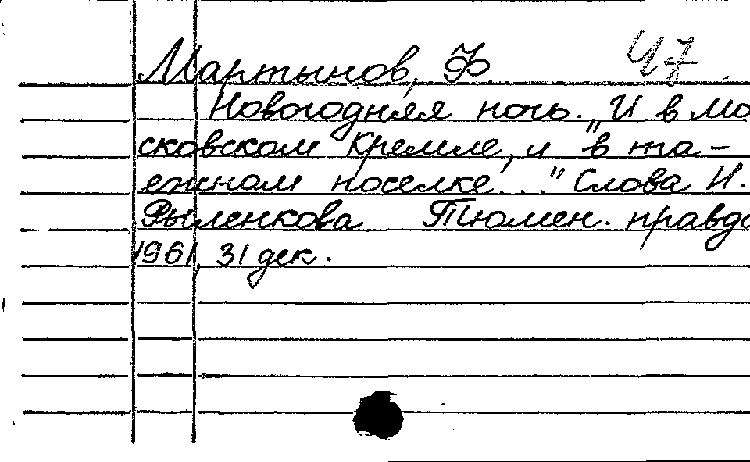 Мартынов, Ф 47
Новогодняя ночь. „И в мо
сковском Кремле, и в та-
ежном поселке..." Слова Н.
Рыленкова Тюмен. правда
1961, 31 дек.